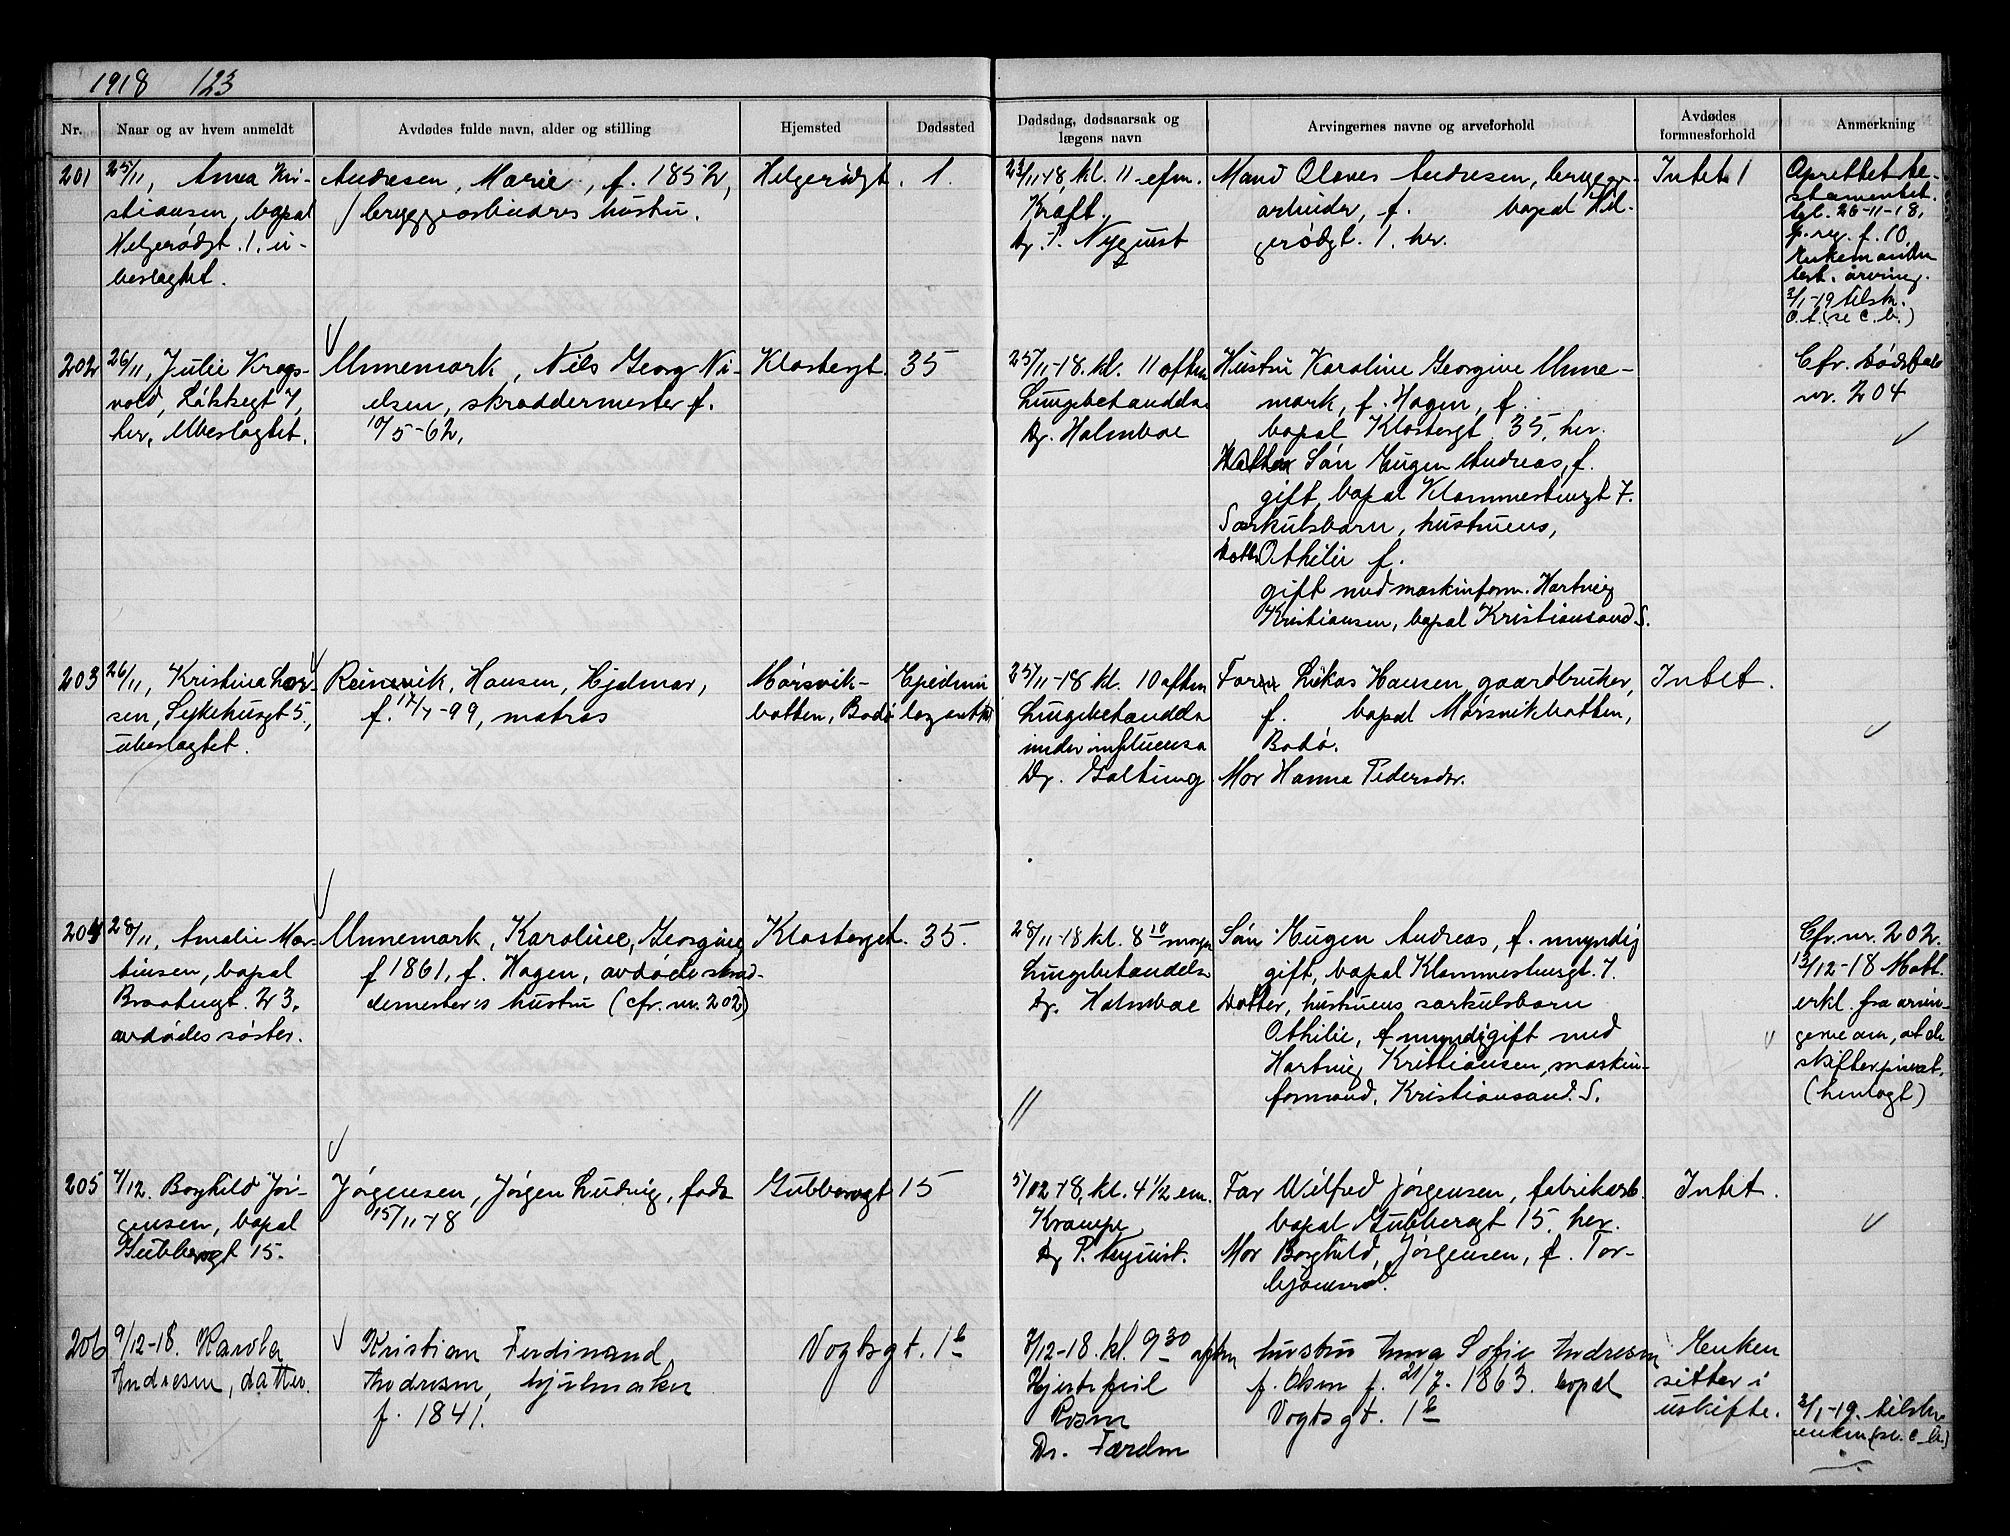 1918 123
Nr.
Naar og av hvem anmeldt
Avdødes fulde navn, alder og stilling
Hjemsted
Dødssted
Dødsdag, dødsaarsak og
lægens navn
Arvingernes navne og arveforhold
Avdødes
formuesforhold
Anmerkning
201
25/11, Anna Kri-
stiansen, bopæl
Helgerødgt. 1. u-
beslægtet.
Andresen, Marie, f. 1852,
bryggearbeidres hustru.
Helgerødgt. 1.
23/11-18, kl. 11 efm.
Kræft.
Dr. P. Nyquist
Mand Olaves Andresen, brygge-
arbeider, f. bopæl Hel-
gerødgt. 1. her.
Intet
Oprettet te-
stamentet.
tgl. 26-11-18,
p. reg. f. 10
Enkemanden
test. arving.
2/1-19 tilskr.
O.A. (se C. b.)
202
26/11, Julie Krogs-
vold, Løkkegt 7,
her, Ubeslægtet.
Unnemark, Nils Georg Ni-
elsen, skræddermester f.
10/5-62,
Klostergt. 35
25/11-18. kl. 11 aften
Lungebetændelse
Dr. Holmboe
Hustru Karoline Georgine Unne-
mark, f. Hagen, f.
bopæl Klostergt 35, her.
Søn Eugen Andreas, f.
gift, bopæl Klommestengt 7.
Særkulsbarn, hustruens,
Datter Othilie f.
gift med maskinform. Hartvig
Kristiansen, bopæl Kristiansand S.
Cfr. dødsfald
nr. 204
203
26/11, Kristina Lar-
sen, Sykehusgt 5,
ubeslægtet.
Reinsvik, Hansen, Hjalmar,
f. 17/7-99, matros
Mørsvik-
botten, Bodø
Epidemi
lazarettet
25/11-18 kl. 10 aften
Lungebetændelse
under influensa
Dr. Galtung
Far Lukas Hansen, gaardbruker,
f. bopæl Mørsvikbotten,
Bodø.
Mor Hanna Pedersdr.
Intet.
204
28/11, Amalie Mar-
tinsen, bopæl
Braatengt. 23.
avdødes søster.
Unnemark, Karoline, Georgine
f 1861, f. Hagen, avdøde skræd-
demesters hustru (cfr. nr. 202)
Klostergt. 35.
28/11-18 kl. 8 10 morgen
Lungebetændelse
Dr. Holmboe
Søn Eugen Andreas, f. myndig
gift, bopæl Klommestengt. 7.
Datter, hustruens særkulsbarn
Othilie, f myndig gift med
Hartvig Kristiansen, maskin-
formand, Kristiansand. S.
Cfr. nr. 202.
13/12-18 Mott.
erkl. fra arvin-
gerne om, at de
skifter privat.
(henlagt)
205
7/12. Borghild Jør-
gensen, bopæl
Gubberogt 15.
Jørgensen, Jørgen Ludvig, født
15/11-18
Gubberogt 15
5/12-18, kl. 4 1/2 em.
Krampe
Dr P. Nyquist.
Far Wilfred Jørgensen, fabrikarb.
bopæl Gubberogt 15, her.
Mor Borghild, Jørgensen, f. Tor-
bjørnsrød.
Intet.
206
9/12-18. Karola
Andresen, datter.
Kristian Ferdinand
Andresen, hjulmaker
f. 1841.
Vogtsgt. 1b
7/12-18. kl. 9 30 aften
Hjertefeil
Rosen
Dr. Færden
hustru Anna Sofie Andresen
f. Olsen f. 21/7. 1863. bopæl
Vogtsgt. 1b
Enken
sitter i
uskifte.
2/1-19. tilskr.
enken (se C. b.)